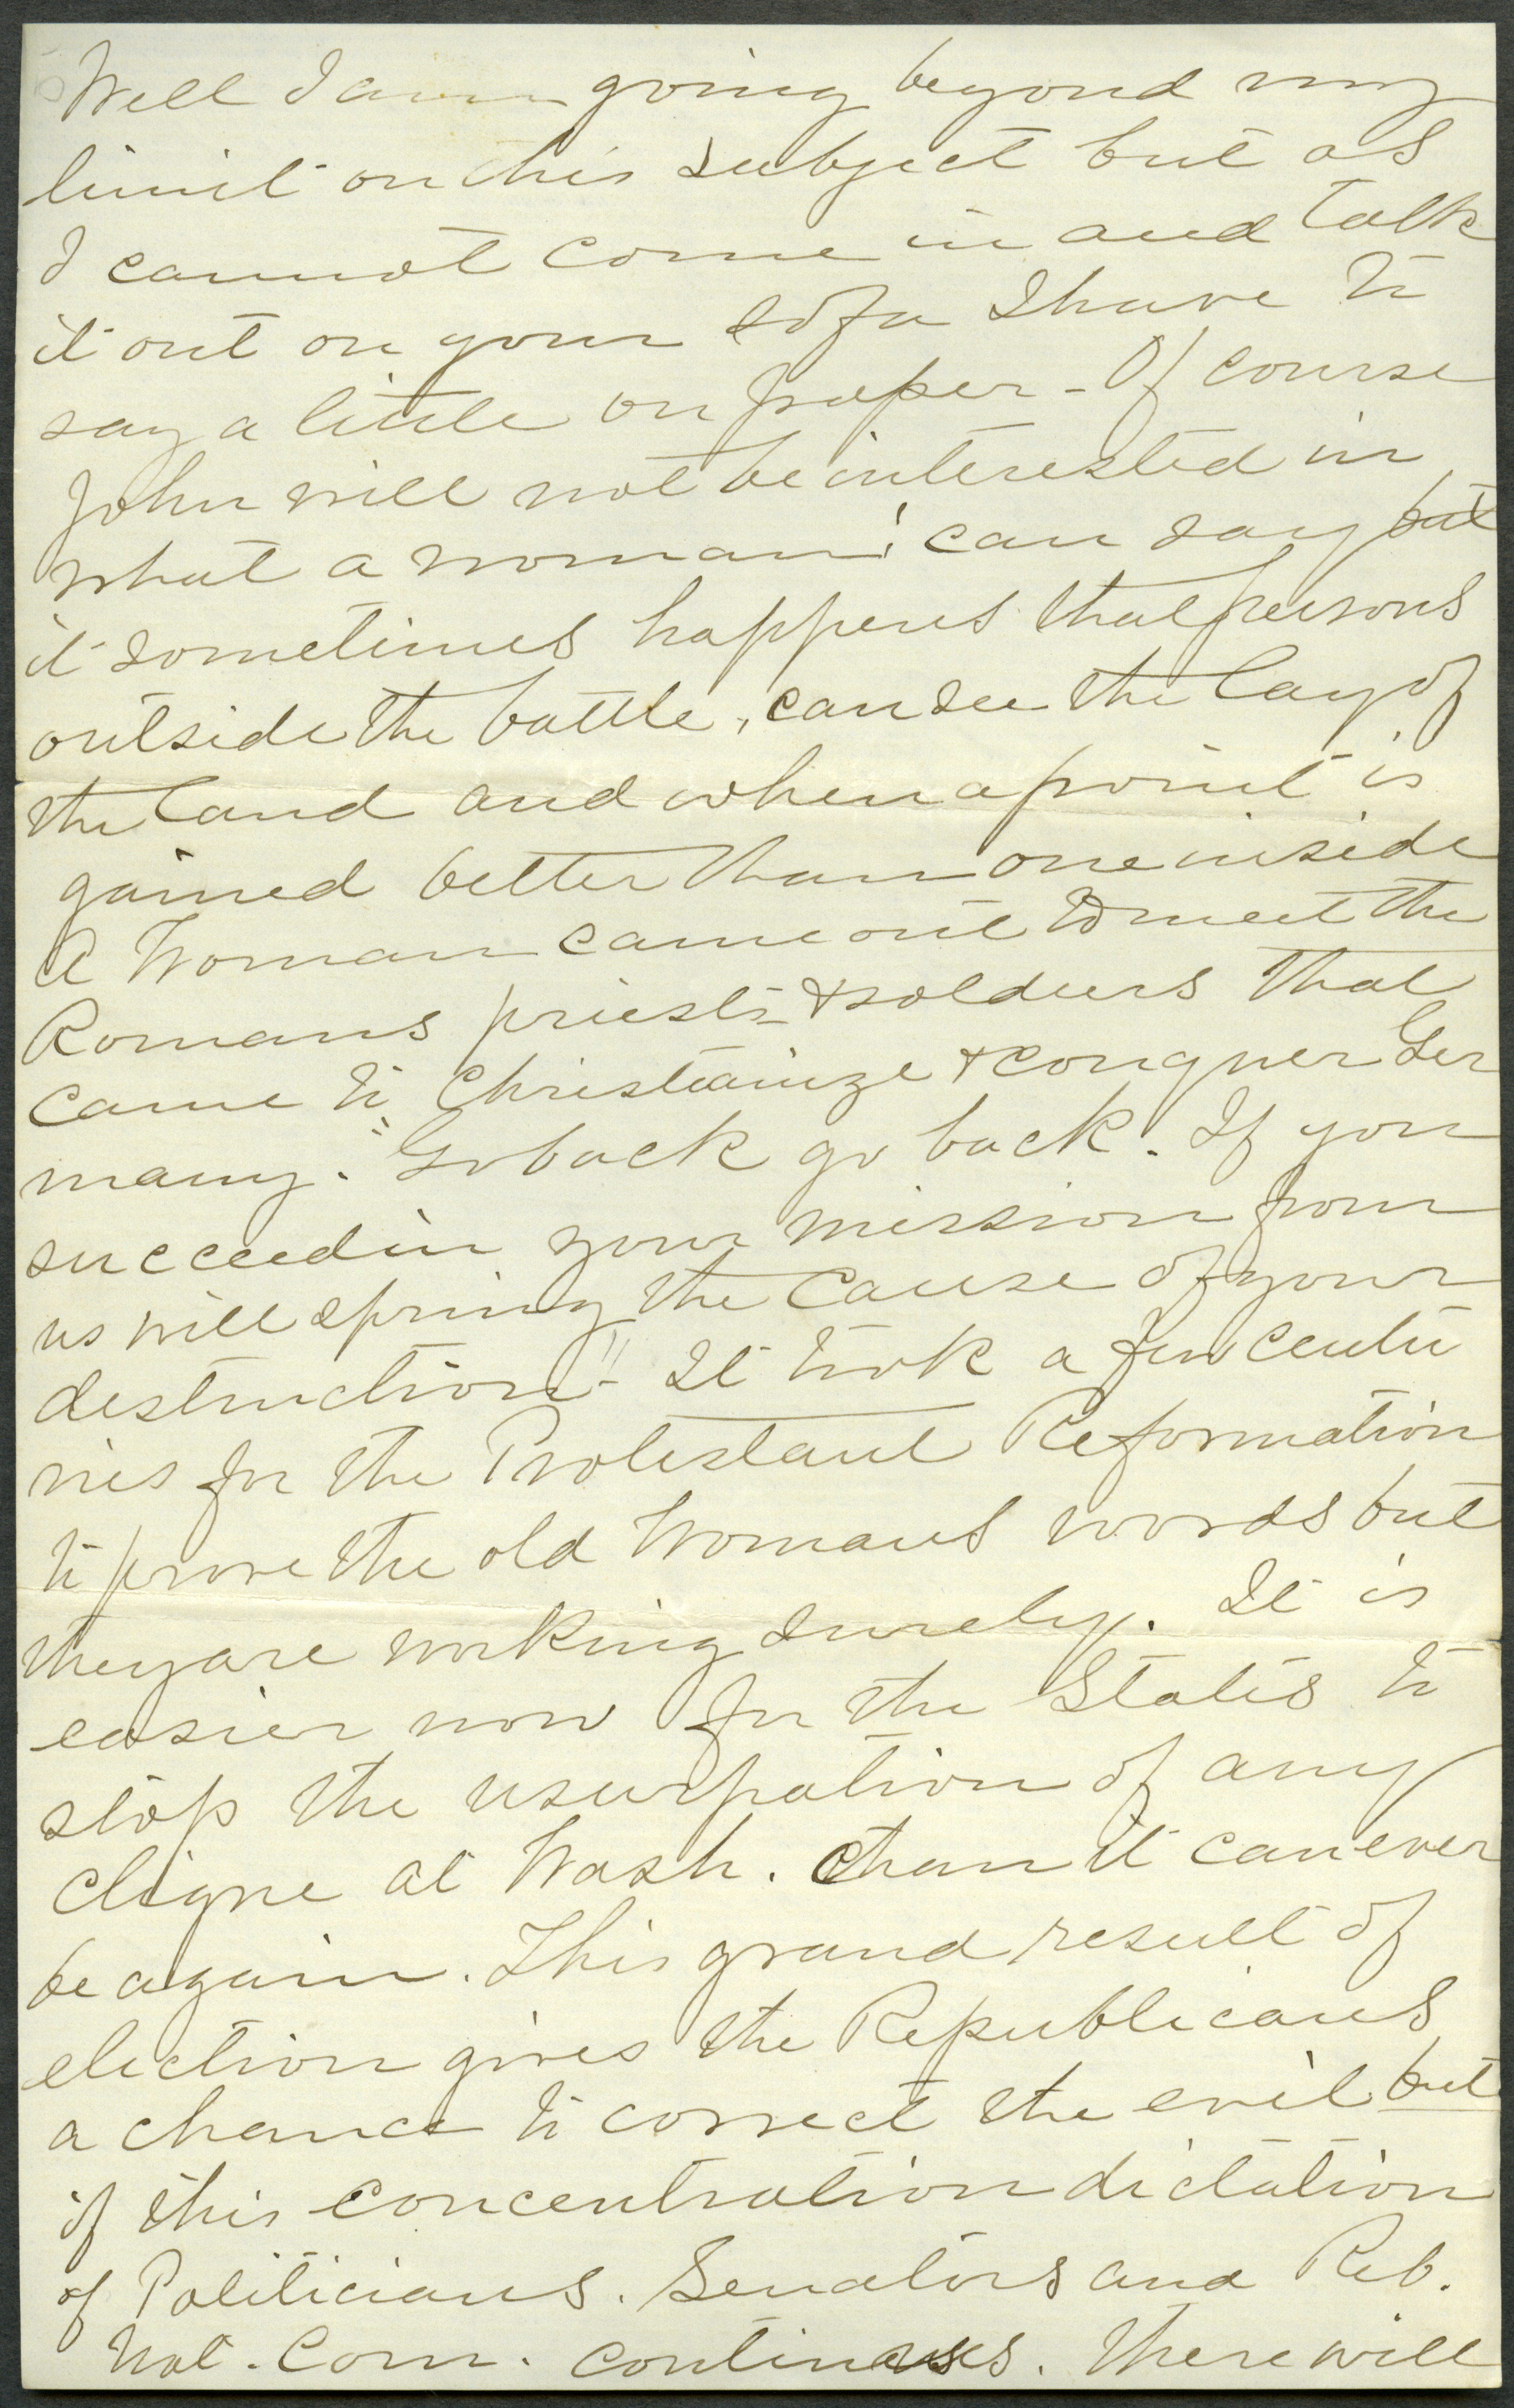 Well I am going beyond my
limit on this subject but as
I cannot come in and talk
it out on your sofa I have to
say a little on paper - Of course
John will not be interested in
what a woman! can say but
it sometimes happens that persons
outside the battle, can see the lay of
the land and when a point is
gained better than one inside
A Woman came out to meet the
Romans priests & soldiers that
came to Christianize & conquer Ger
many. "Go back go back. If you
succeed in your mission from
us will spring the cause of your
destruction" - It took a few centu
ries for the Protestant Reformation
to prove the old Womans words but
they are working surely. It is
easier now for the States to
stop the usurpation of any
cligue at Wash. than it can ever
be again. This grand result of
election gives the Republicans
a chance to correct the evil but
if this concentration dictation
of Politicians. Senators and Reb.
Nat. Com. continues. there will